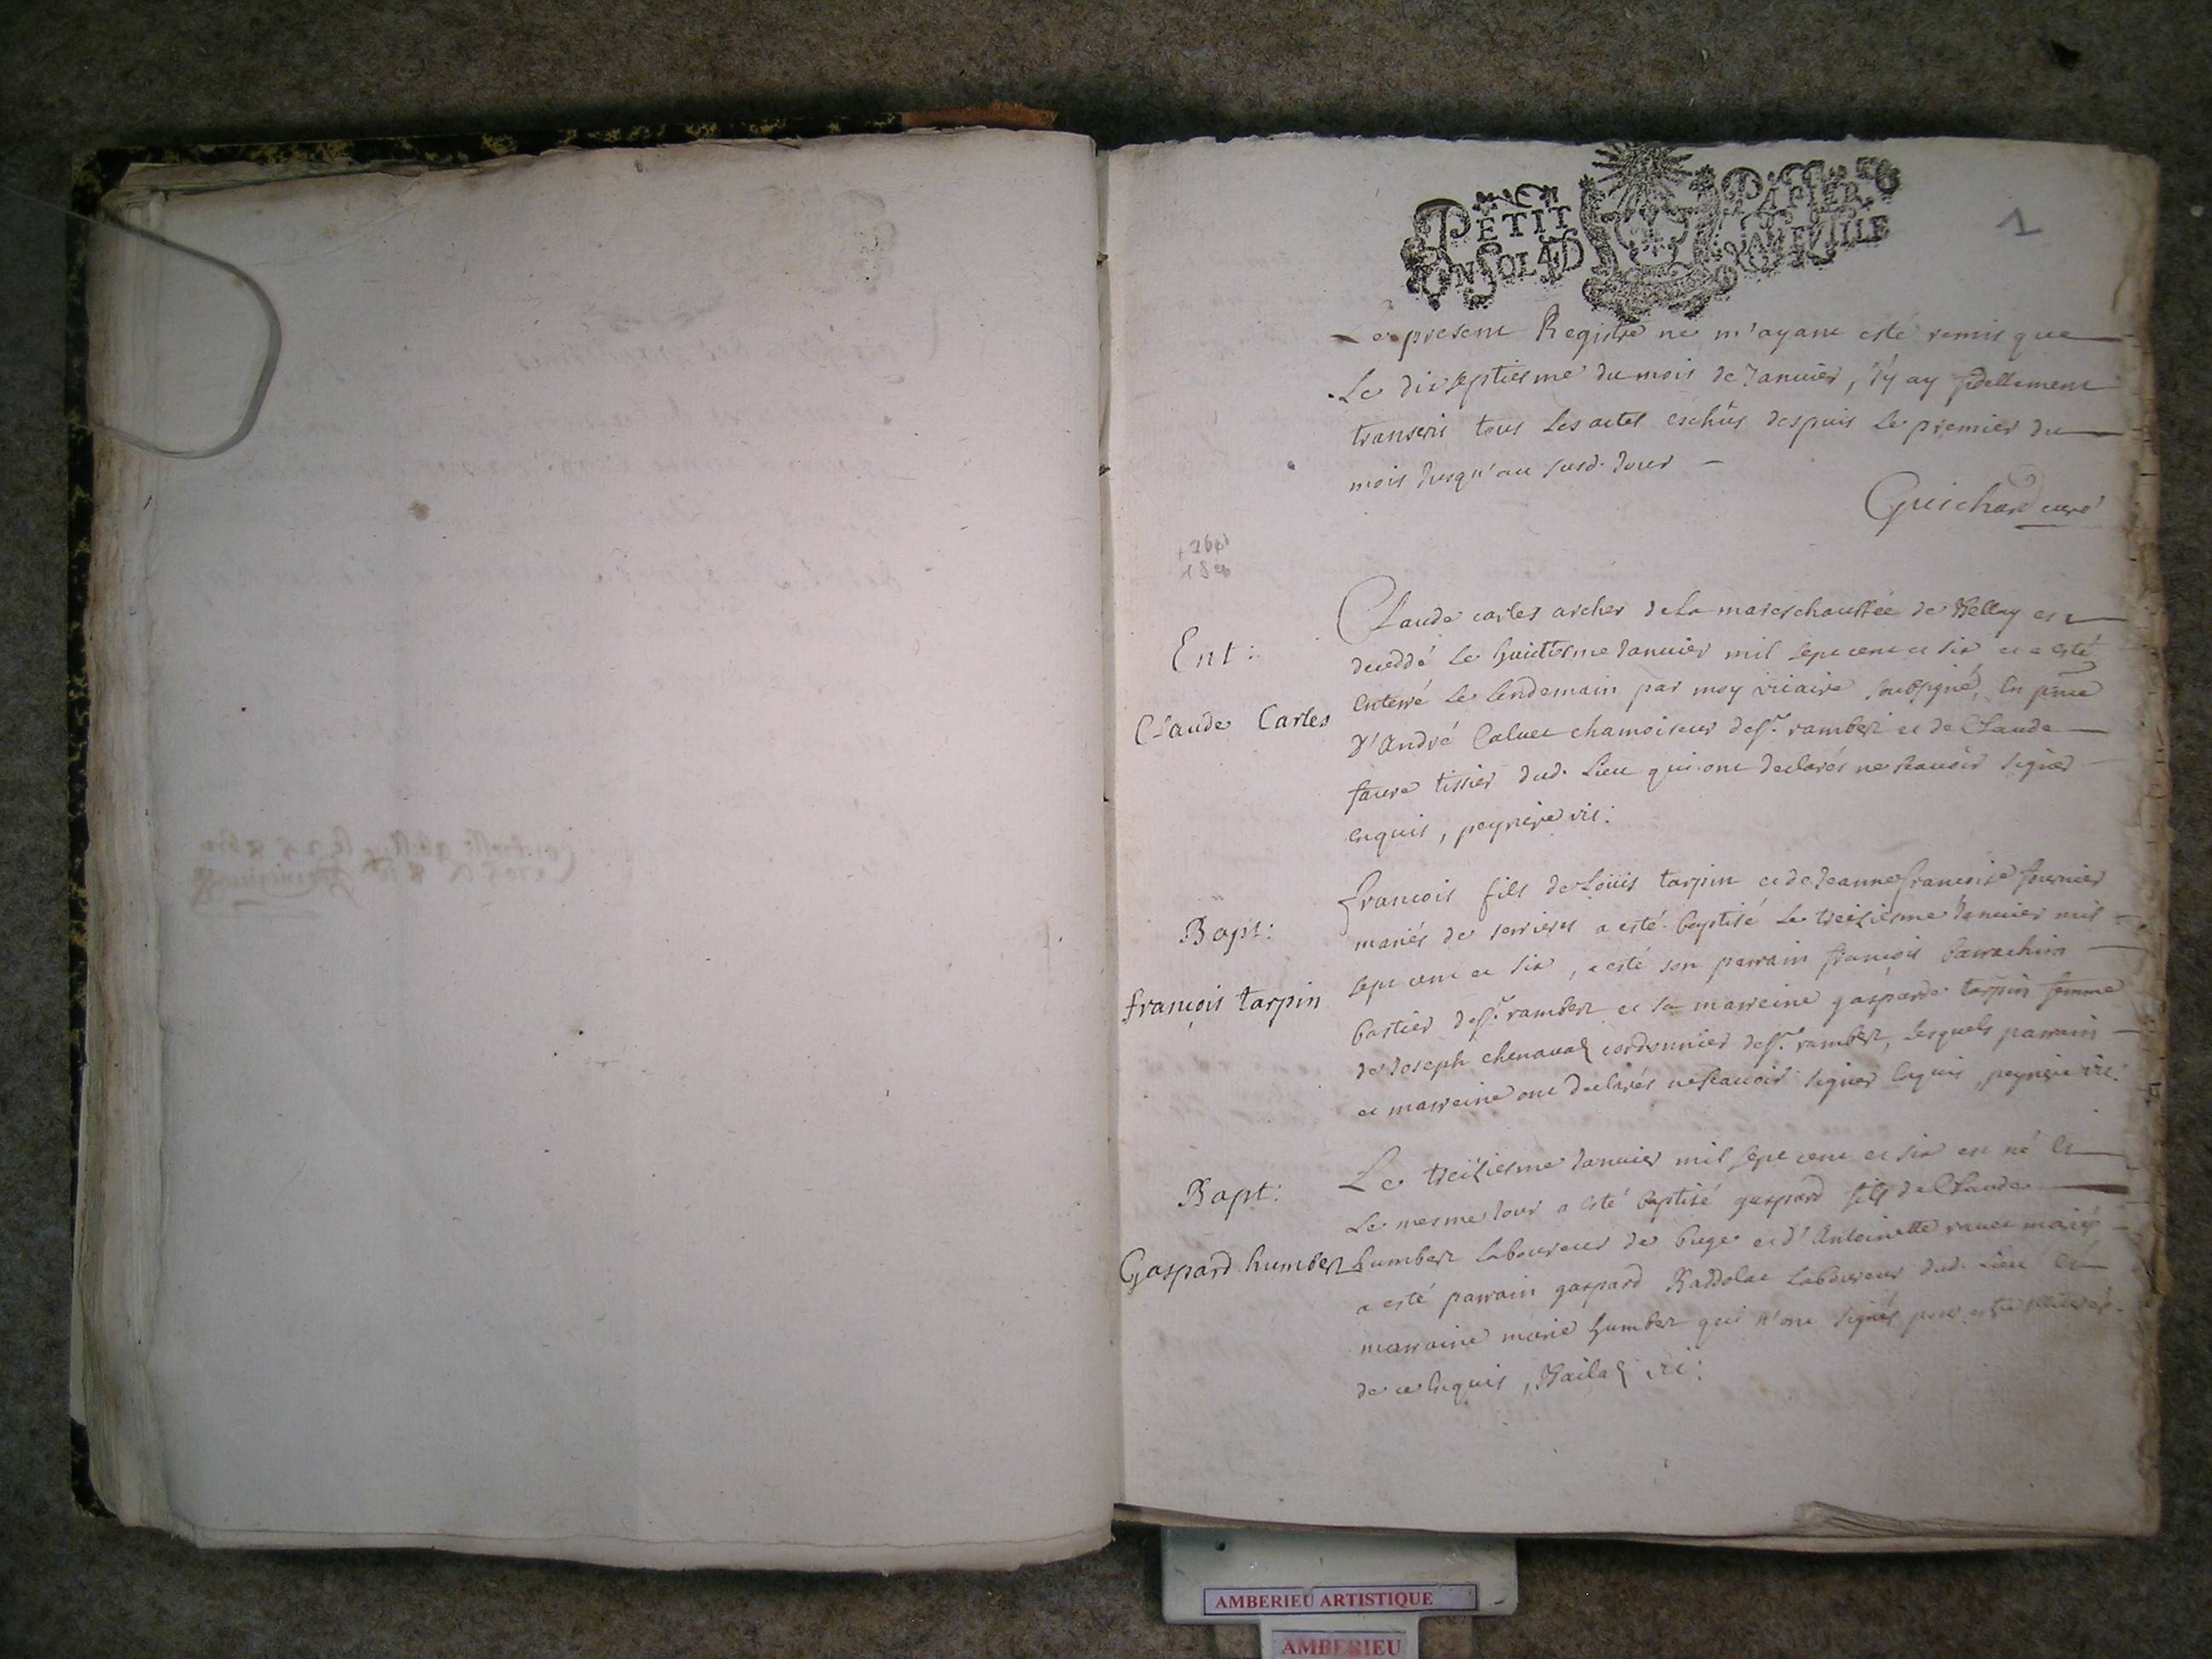 PETIT PAPIER
1
Le present Registre ne m'ayant esté remis que
Le dixseptiesme du mois de Janvier, J'y ay fidellement
transcris tous Les actes eschûs despuis Le premier du
mois Jusqu'au susd. Jour
Guichard curé
Ent:
Claude Carles
Claude carles archer de La mareschaussée de Belley est
deceddé Le huictiesme Janvier mil sept cent et six et a esté
enterré Le Lendemain par moy vicaire soubsigné, en pnce
d'André Caluet chamoiseur de st. rambert et de Claude
faure tissier dud. Lieu qui ont declarés ne scauoir signer
enquis, peyriere vic:
Bapt:
françois tarpin
francois fils de Loüis tarpin et de Jeanne francoise fournier
mariés de serrieres a esté baptisé Le treiziesme Janvier mil
sept cent et six, a esté son parrain françois barrachin
bastier de st. rambert et sa marreine gasparde tarpin femme
de Joseph chenaval cordonnier de st. rambert, Lesquels parrain
et marreine ont declarés ne scauoir signer enquis, peyriere vic:
Bapt:
Gaspard humbert
Le treiziesme Janvier mil sept cent et six est né et
Le mesme Jour a esté baptisé gaspard fils de Claude
humbert Laboureur de buges et d'Antoinette rauet mariés
a esté parrain gaspard Baddolat Laboureur dud. Lieu et
marraine marie humbert qui n'ont signés pour
de ce enquis, vic:
AMBERIEU ARTISTIQUE
AMBERIEU